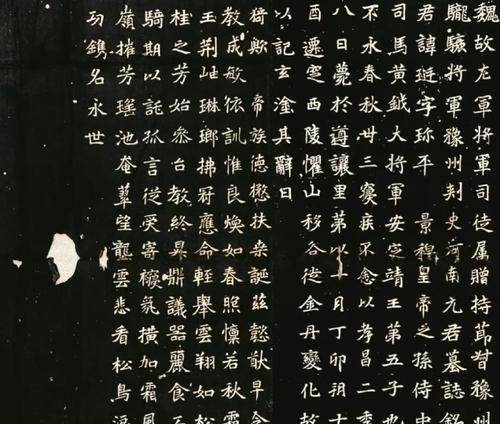 魏故左軍將軍司徒属贈持節督豫州
驤將軍豫州刾史河南元君墓誌銘
君諱珽字珎平 景穆皇帝之孫侍中
司馬黃鉞大將軍安定靖王第五子也
不永春秋卅三寢疾不愈以孝昌二季
八日薨於遵讓里第以十月丁卯朔十
酉遷窆西陵懼山移谷徙金丹變化故
以記玄塗其辭曰
猗歟 帝族德懋扶桒誕茲懿猷早令
教成敏依訓惟良煥如春照懍若秋霜
王荊岫琳瑯拂冠應命輕舉雲翔如松
桂之芳始叅台教終昇鼎議器麗食不
騎期以託孤言從受寄穢氛橫加霜風
嶺摧芳瑤池奄蕚望壟雲悲看松鳥淚
鐫名永世